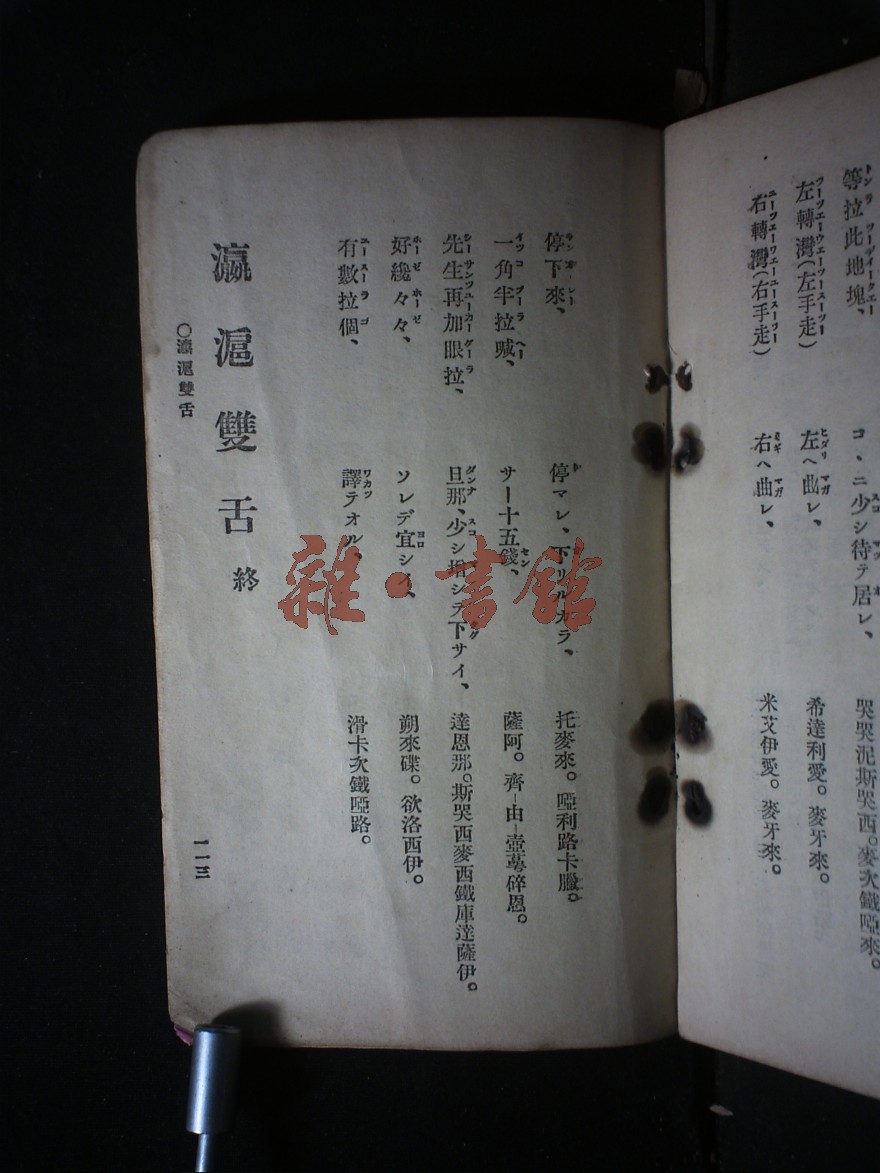 等拉此地塊、
コヽニ少シ待テ居レ、
哭哭泥斯哭西。麥次鐵啞來。
左轉灣(左手走)
左ヘ曲レ、
希達利愛。麥牙來。
右轉灣(右手走)
右ヘ曲レ、
米艾伊愛。麥牙來。
停下來、
停マレ、下リルカラ、
托麥來。啞利路卡臘。
一角半拉喊、
サー十五錢、
薩阿。齊-由-壺蕚碎恩。
先生再加眼拉、
旦那、少シ増シテ下サイ、
達恩那。斯哭西麥西鐵庫達薩伊。
好纔々々、
ソレデ宜シイ、
朔來碟。欲洛西伊。
有數拉個、
譯テオル、
滑卡次鐵啞路。
瀛滬雙舌 終
〇瀛滬雙舌
一一三
雜·書館